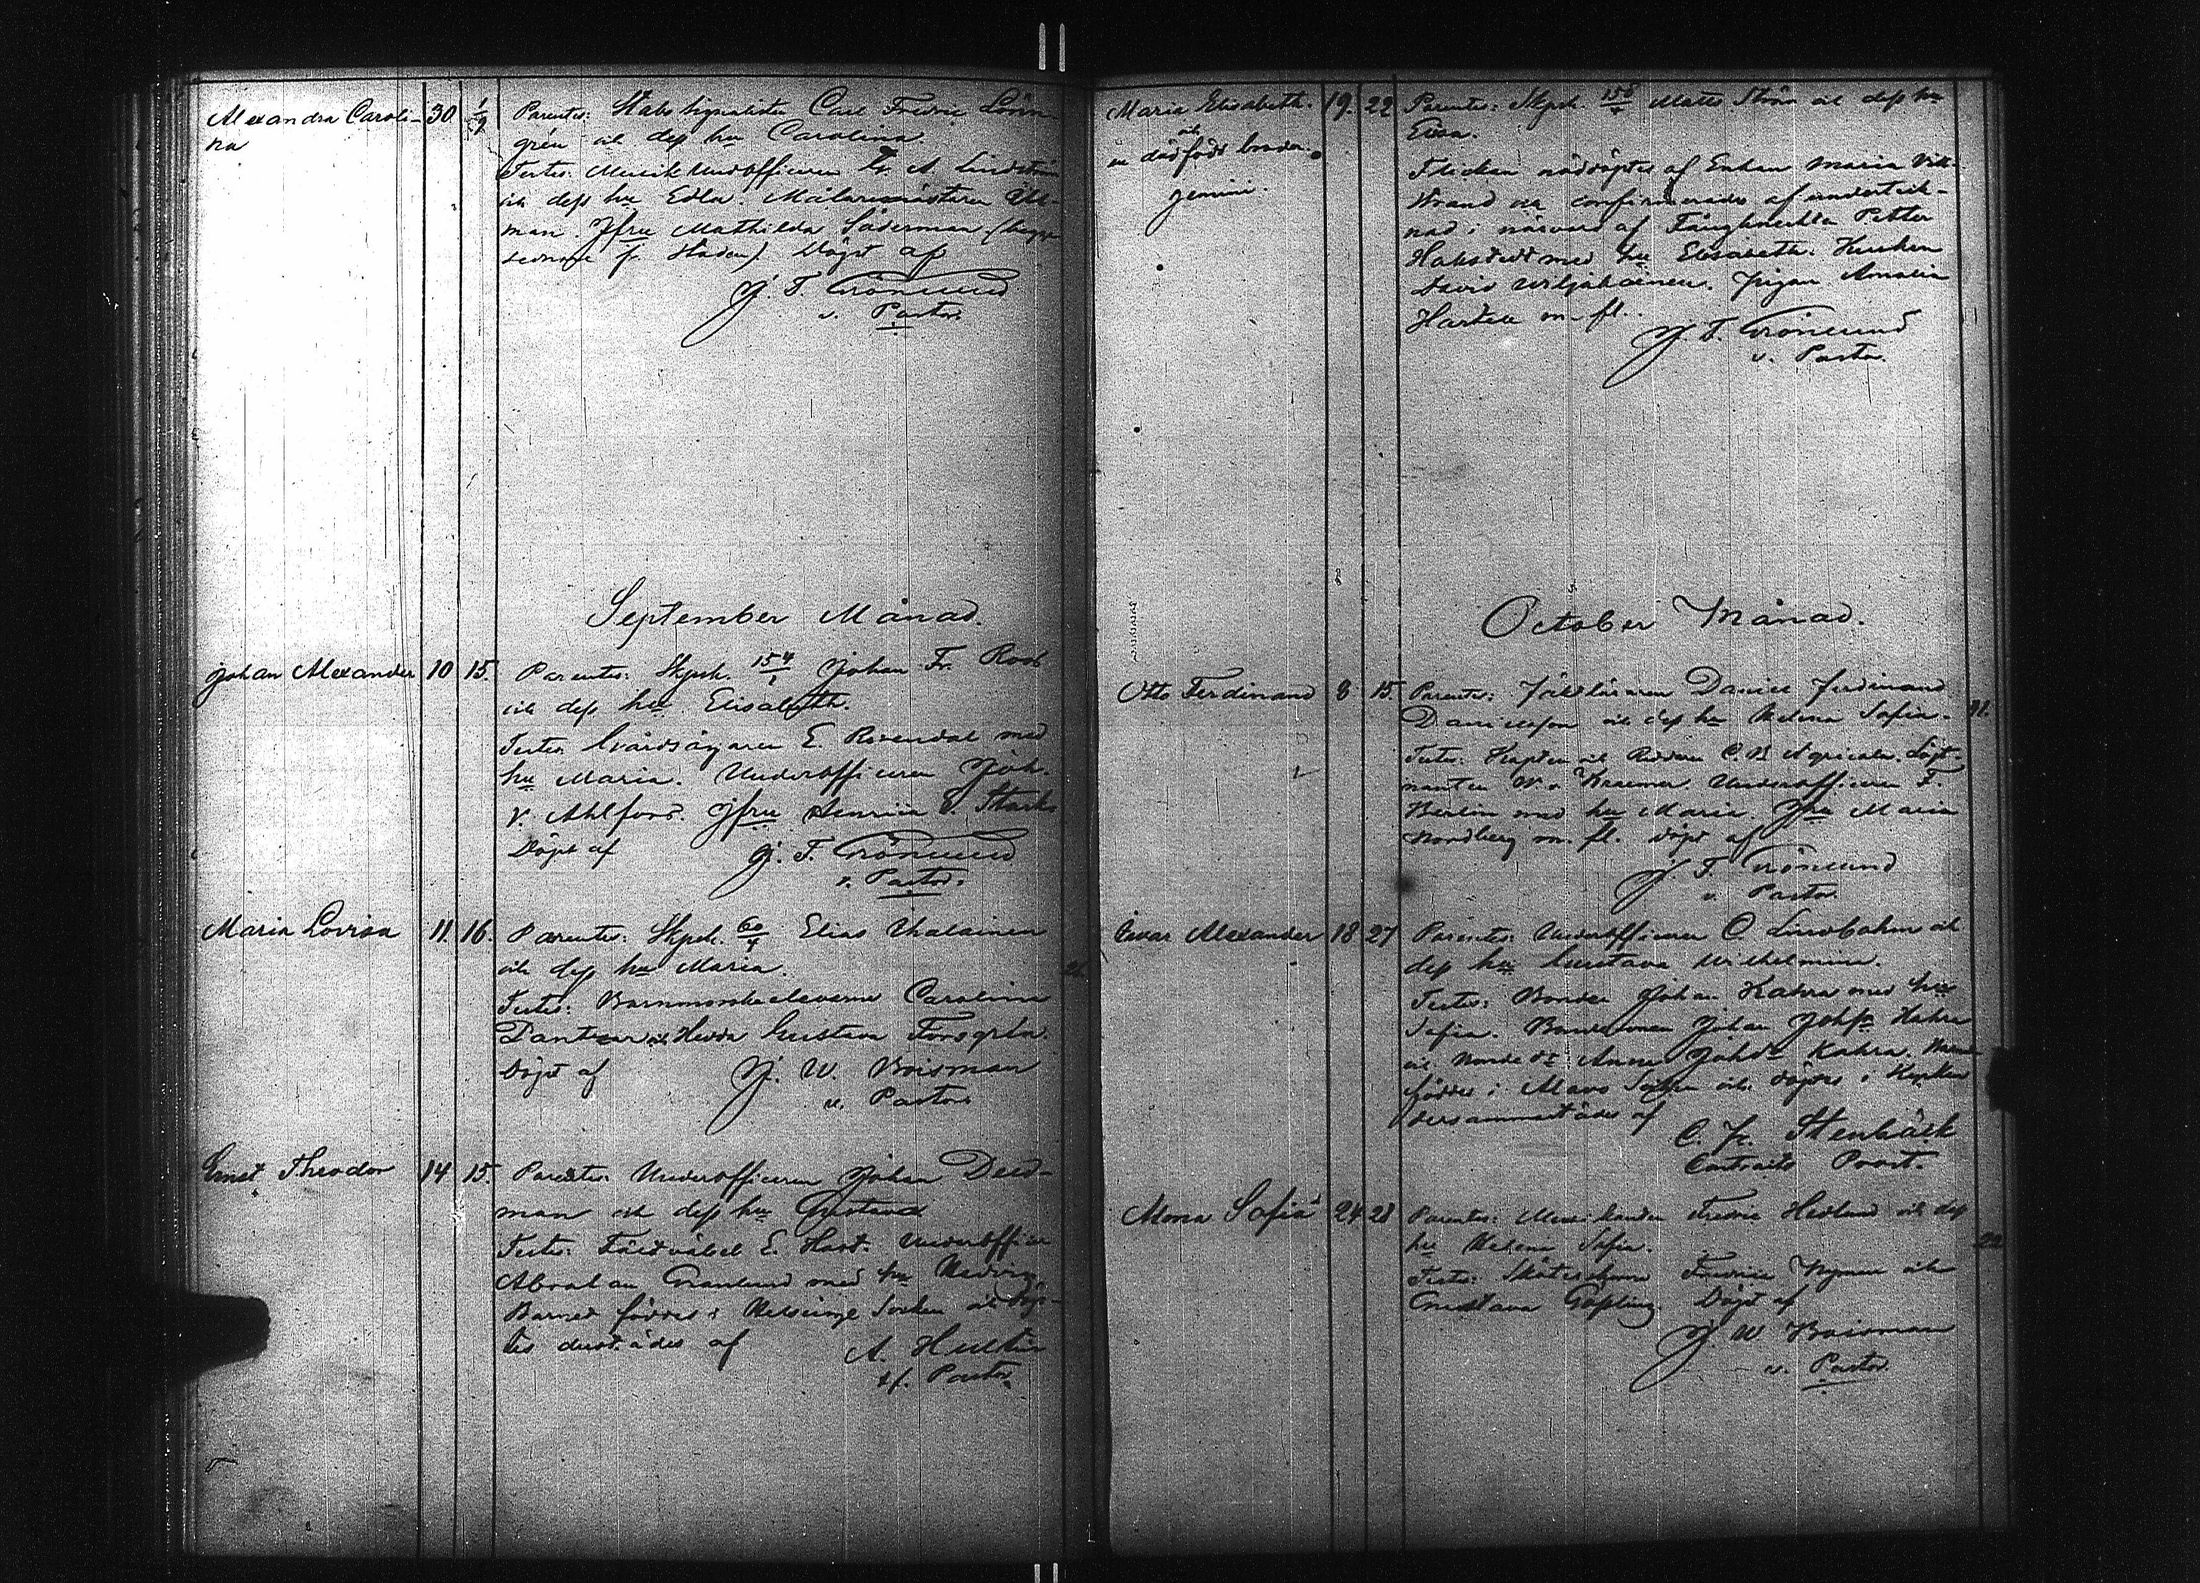 Alexandra Caroli- 30 1/9 Parentes: Stabs signalisten Carl Fredric Lövin-
na grén och dess hu Carolina.
Testes: Musik Underofficeren Fr. A. Lindström
och dess hu Edla. Målaremästaren
man. Jfru Mathilda Söderman (begge
fr. Staden). Döpt af
J. F. Grönlund
v. Pastor.
September Månad.
Johan Alexander 10 15. Parentes: Skpsk. 154/1 Johan Fr. Roos
och dess hu Elisabeth.
Testes: Gårdsägaren E. Rosendal med
hu Maria. Underofficeren Joh.
V. Ahlfors. Jfru Henrica E. Starks
Döpt af J. F. Grönlund
v. Pastor.
Maria Lovisa 11. 16. Parentes: Skpsk. 60/4 Elias Uhalainen
och dess hu Maria.
Testes: Barnmorskeeleverne Carolina
Dantzar och Hedda Gustava Forsgrén.
Döpt af J. W. Boisman
v. Pastor
Ernst Theodor 14 15. Parentes: Underofficeren Johan Deed-
man och dess hu Gustava
Testes: Fältväbel E. Hast. Underofficer
Abraham Granlund med hu
Barnet föddes i Helsinge Socken och döp-
tes derstädes af A. Hultin
tf. Pastor
Maria Elisabeth. 19. 22 Parentes: Skpsk. 158 Matts Ström och dess hu
och Eva.
en dödfödd broder. Flickan nöddöptes af Enkan Maria Vik-
gemini. strand och confirmerades af underteck-
nad i närvaro af Fångknekten Petter
Hakstedt med hu Elisabeth. Kusken
David Wiljakainen. Pigan Amalia
Hartell m. fl.
J. F. Grönlund
v. Pastor
October Månad.
Otto Ferdinand 8 15. Parentes: Fältskären Daniel Ferdinand
Danielsson och dess hu Helena Sofia.
Testes: Kapten och Riddaren C. B. Agricola. Löjt-
nanten W. v. Kraemer. Underofficeren F.
Berlin med hu Maria. Jfru Maria
Nordberg m. fl. Döpt af
J. F. Grönlund
v. Pastor
Ivar Alexander 18 27 Parentes: Underofficeren C. Lindbohm och
dess hu Gustava Wilhelmina.
Testes: Bonden Johan Kahra med hu
Sofia. Bondesonen Johan Johsn Kahra
och Bonde dr Anna Johsdr Kahra. Barnet
föddes i Alavo Socken och döptes i Kyrkan
dersammastädes af
C. Fr. Stenbäck
Contracts Prost.
Maria Sofia 24 28 Parentes: Musikanten Fredric Hedlund och dess
hu Helena Sofia.
Testes: Sköterskorna Fredrica Nyman och
Gustava Gössling. Döpt af
J. W. Boisman
v. Pastor